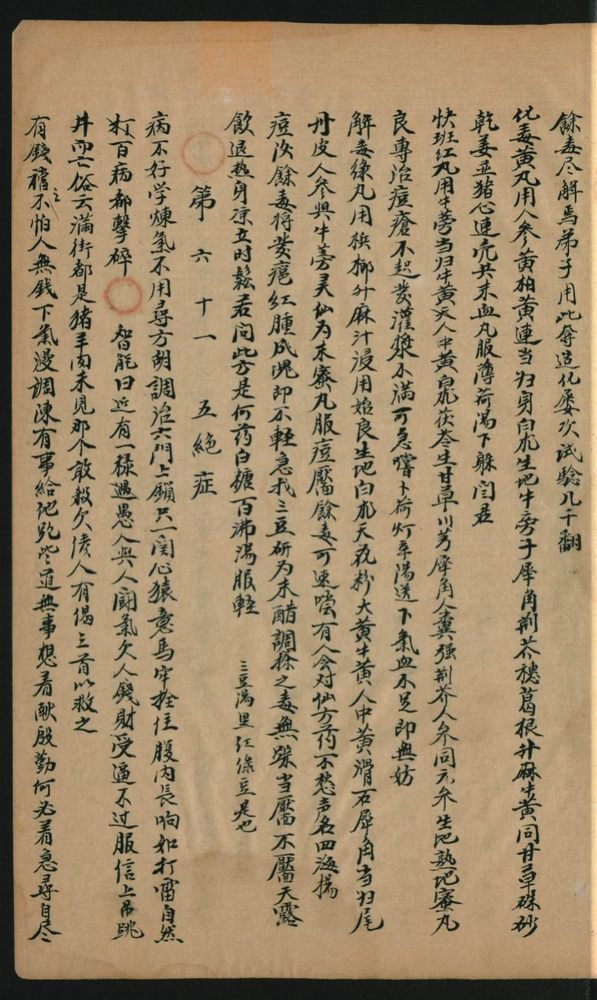 餘毒尽解焉弟子用此奪造化屡次試驗几千翻
化毒黄丸用人参黄柏黄連当归身白朮生地牛旁子犀角荆芥穗葛根升麻牛黄同甘草硃砂
乾姜並猪心連壳共末血丸服薄荷湯下躲闫君
快班红丸用牛蒡当归牛黄天人中黄白朮茯苓生甘草川芎犀角人糞强荆芥人参同元参生地熟地蜜丸
良專治痘瘡不起发灌漿不满可急嚐卜荷灯草湯送下氣血不足即無妨
解毒绿丸用槟榔升麻汁浸用始良生地白朮天花粉大黄牛黄人中黄滑石犀角当归尾
丹皮人参與牛蒡灵仙为末蜜丸服痘靨餘毒可速嚐有人会对仙方药不愁声名四海揚
痘次餘毒将发疤红腫成塊即不軽急找三豆研为末醋調搽之毒無踪当靨不靨天露
飲退熱身凉立时鬆若问此方是何药白糖百沸湯服軽 三豆湯黑红绿豆是也
第六十一 五絶症
病不好学煉氣不用尋方胡調治六門上鎖只一闫心猿意馬牢拴住腹内長响如打雷自然
打百病都擊碎 智能曰近有一禄遇愚人與人鬭氣欠人錢財受逼不过服信上吊跳
井而亡俗云滿街都是猪羊肉未見那个敢殺欠債人有偈三首以救之
有錢禧之不怕人無钱下氣漫調陳有事給他跪些道無事想看献殷勤何必着急尋自尽